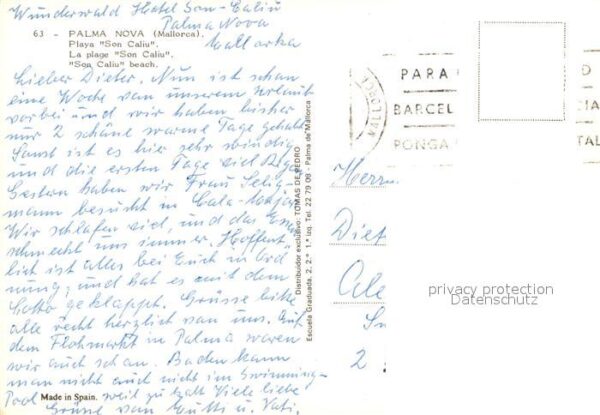 Wunderwald Hotel Son-Caliu
Palma Nova
Mallorka
63 - PALMA NOVA (Mallorca).
Playa "Son Caliu".
La plage "Son Caliu".
"Son Caliu" beach.
Lieber Dieter. Nun ist schon
eine Woche von unserem Urlaub
vorbei und wir haben bisher
nur 2 schöne warme Tage gehabt
Sonst ist es hier sehr windig
und die ersten Tage viel Regen
Gestern haben wir Frau Selig-
mann besucht in Cala-
Wir schlafen viel, und das Essen
schmeckt uns immer. Hoffent-
lich ist alles bei Euch in Ord
nung, und hat es mit dem
Lotto geklappt. Grüsse bitte
alle recht herzlich von uns. Auf
dem Flohmarkt in Palma waren
wir auch schon. Baden kann
man nicht auch nicht im Swimming-
Pool weil zu kalt Viele liebe
Grüsse von Mutti u. Vati.
Made in Spain.
Distribuidor exclusivo: TOMAS DE PEDRO
Escuela Graduada, 2, 2.° 1.ª izq. Tel. 22 79 09 - Palma de Mallorca
MALLORCA
PARA
BARCEL
PONGA
D
TAL
Herrn
Diet
2
privacy protection
Datenschutz